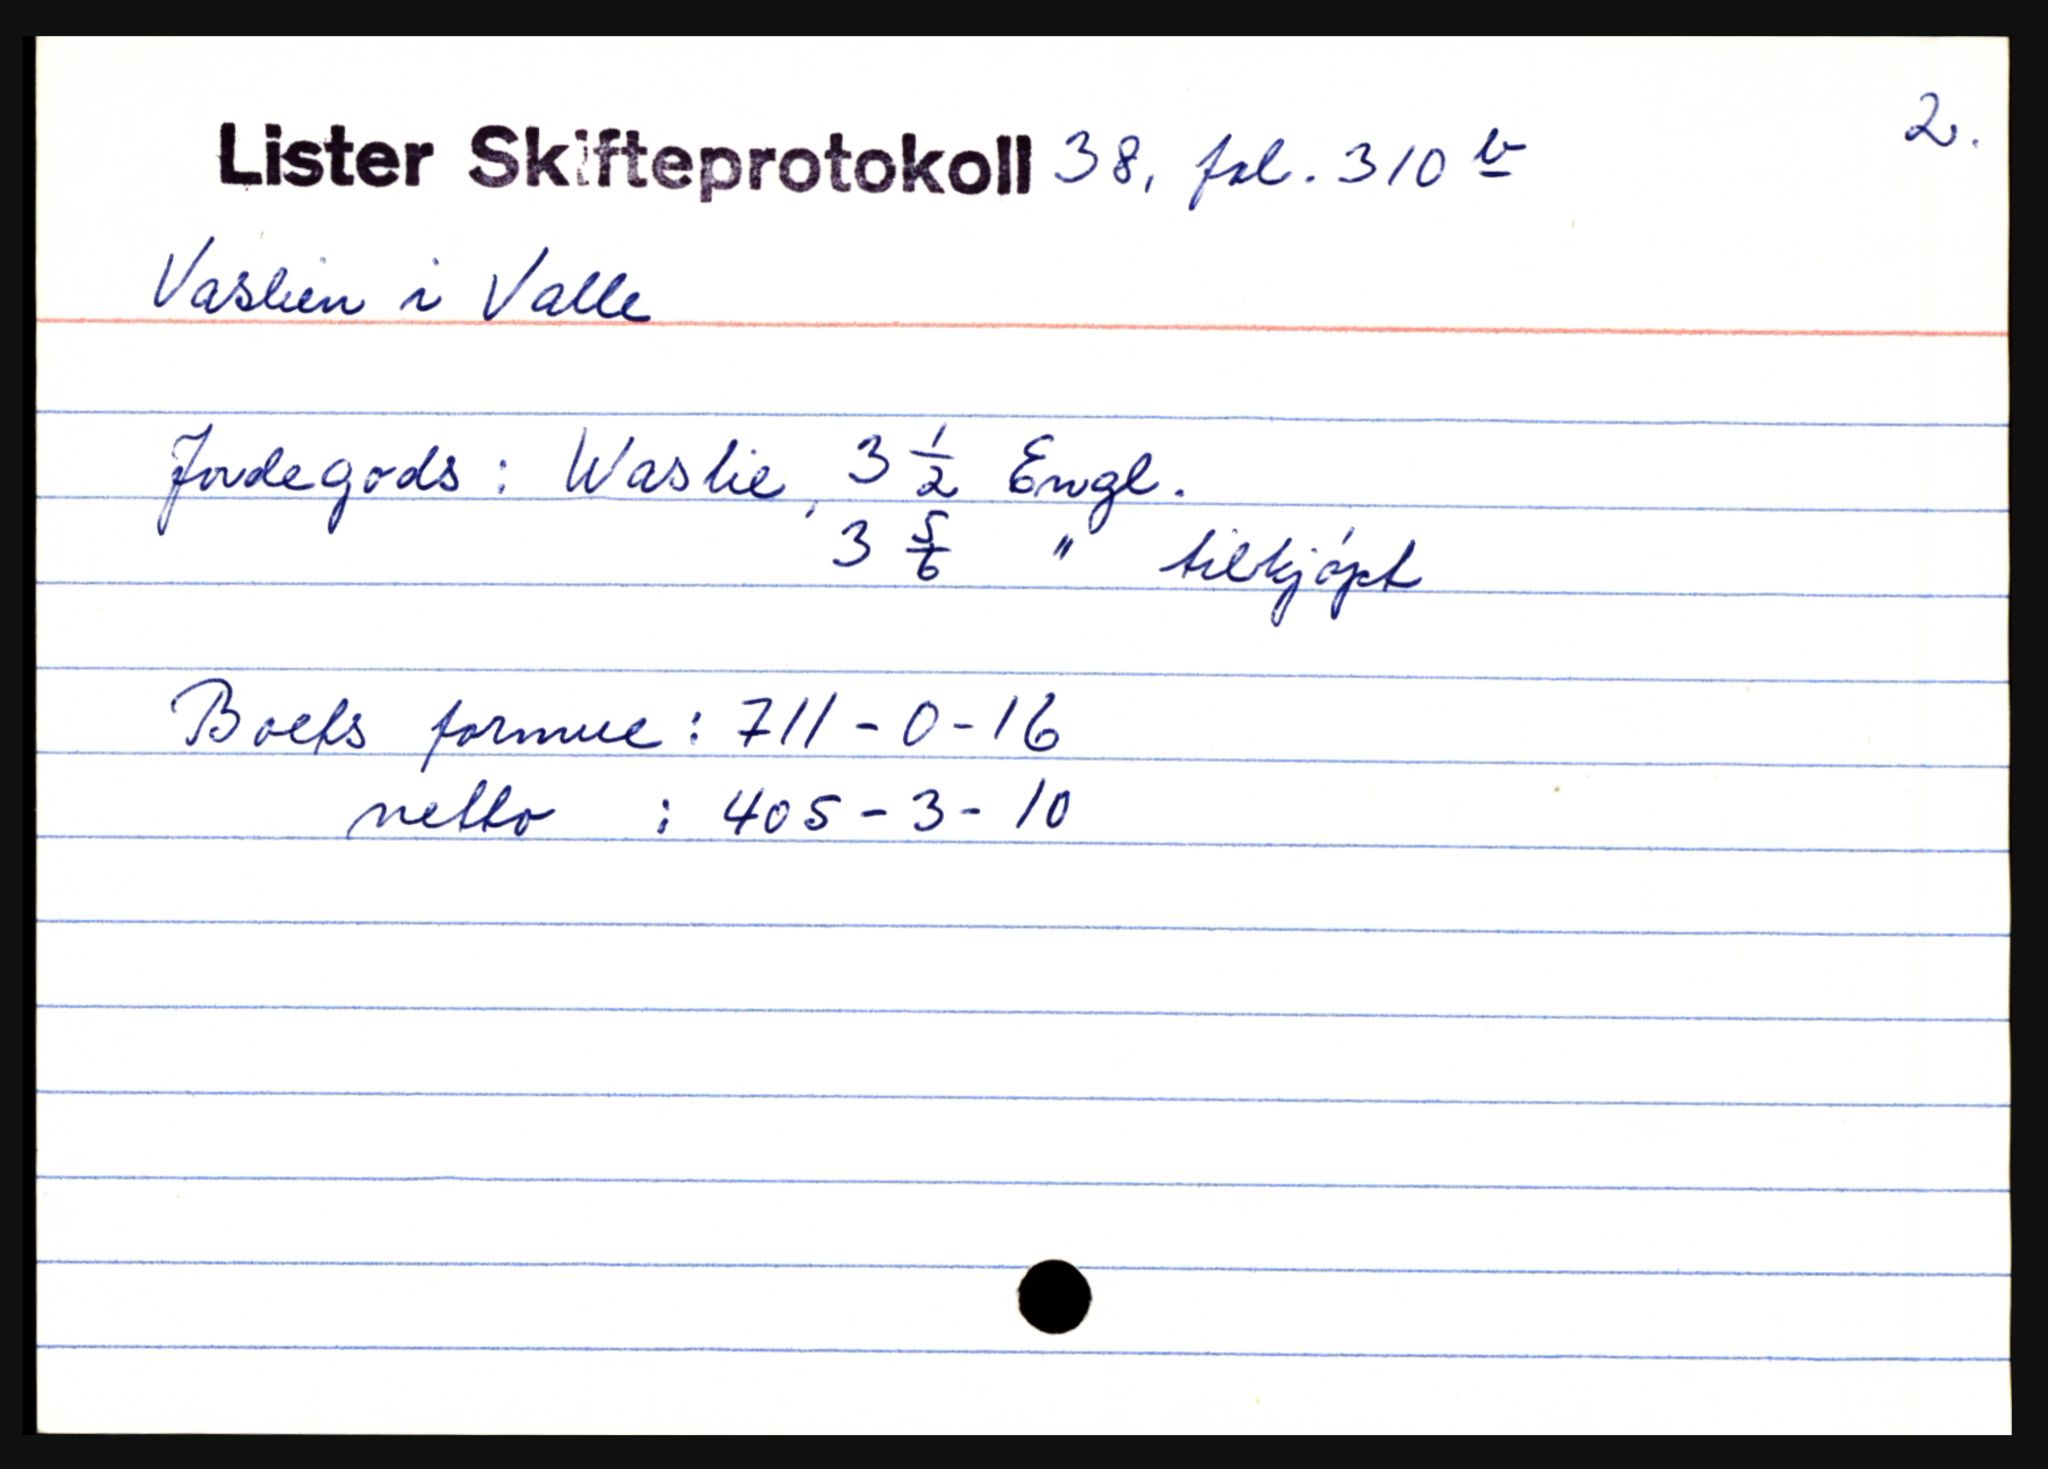 2.
Lister Skifteprotokoll 38, fol. 310 b
Vaslien i Valle
Jordegods: Waslie, 3 1/2 Engl.
3 5/6 " tilkjøpt
Boets formue: 711-0-16
netto : 405-3-10